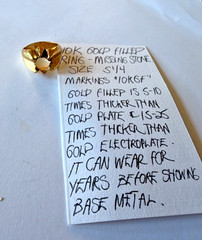 10K GOLD FILLED
RING - MISSING STONE
SIZE 5 1/4
MARKINGS "10KGF"
GOLD FILLED IS 5-10
TIMES THICKER THAN
GOLD PLATE & 15-25
TIMES THICKER THAN
GOLD ELECTROPLATE.
IT CAN WEAR FOR
YEARS BEFORE SHOWING
BASE METAL.